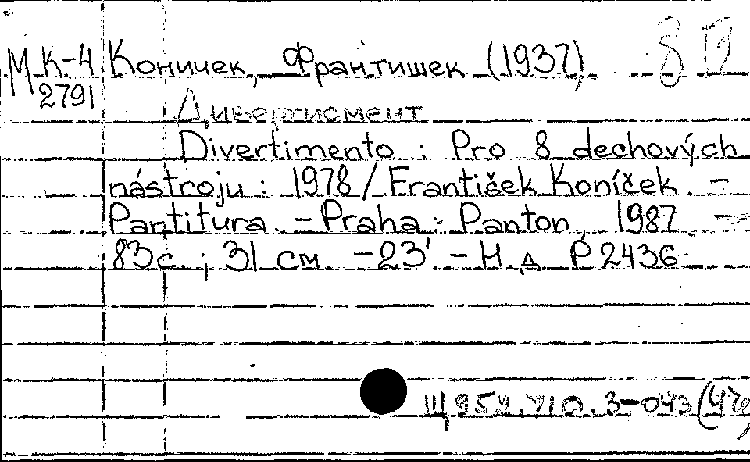 М К-4 Коничек, Франтишек (1937) 8 П
2791
Дивертисмент
Divertimento : Pro 8 dechových
nástroju : 1978 / František Koníček. –
Partitura. – Praha : Panton, 1987. –
83 с ; 31 см. – 23' – Н. д. P 2436
Щ 952.710.3-043(4Че)